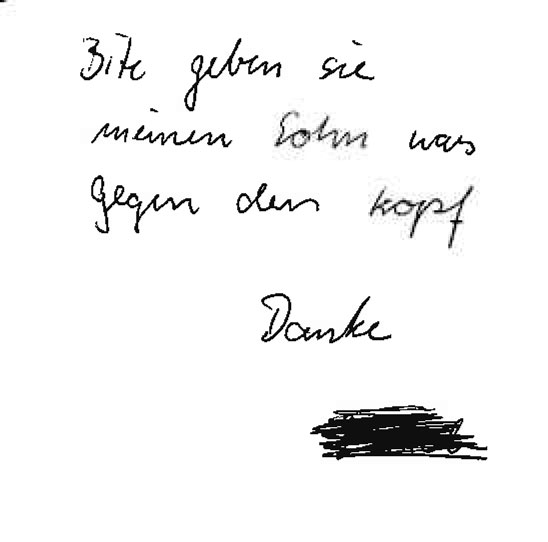 Bite geben sie
meinen Sohn was
gegen den kopf
Danke